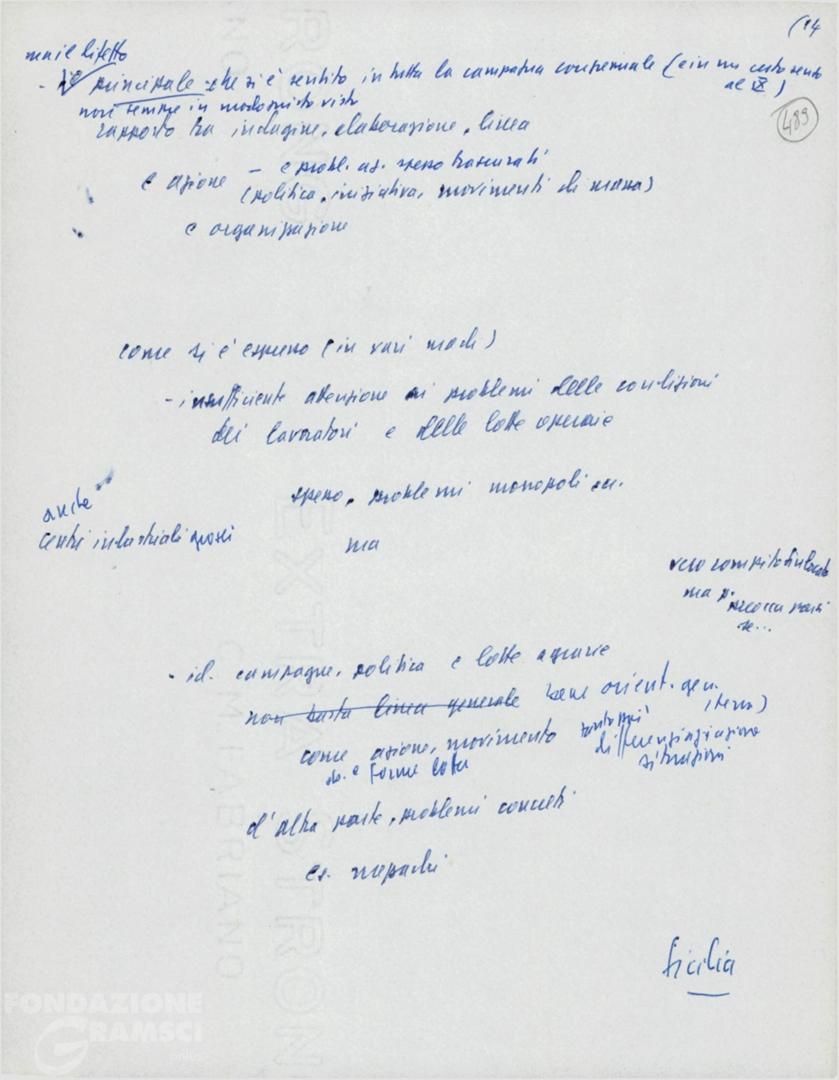 (14
489
ma il difetto
- Il principale che si è sentito in tutta la campagna congressuale (e in un certo senso
al IX)
non sempre in modo giusto visto
rapporto tra indagine, elaborazione, linea
e azione – e probl. az. spesso trascurati
(politica, iniziativa, movimenti di massa)
e organizzazione
come si è espresso (in vari modi)
- insufficiente attenzione ai problemi delle condizioni
dei lavoratori e delle lotte operaie
spesso, problemi monopoli ecc.
anche
centri industriali grossi
ma
vero compito sindacato
ma p.
se...
- id. campagne, politica e lotte agrarie
non basta linea generale bene orient. gen.
come azione, movimento
e forme lotta
differenziazione
situazioni
d'altra parte, problemi concreti
es. mezzadri
Sicilia
FONDAZIONE
GRAMSCI
EXTRA STRONG
FABRIANO